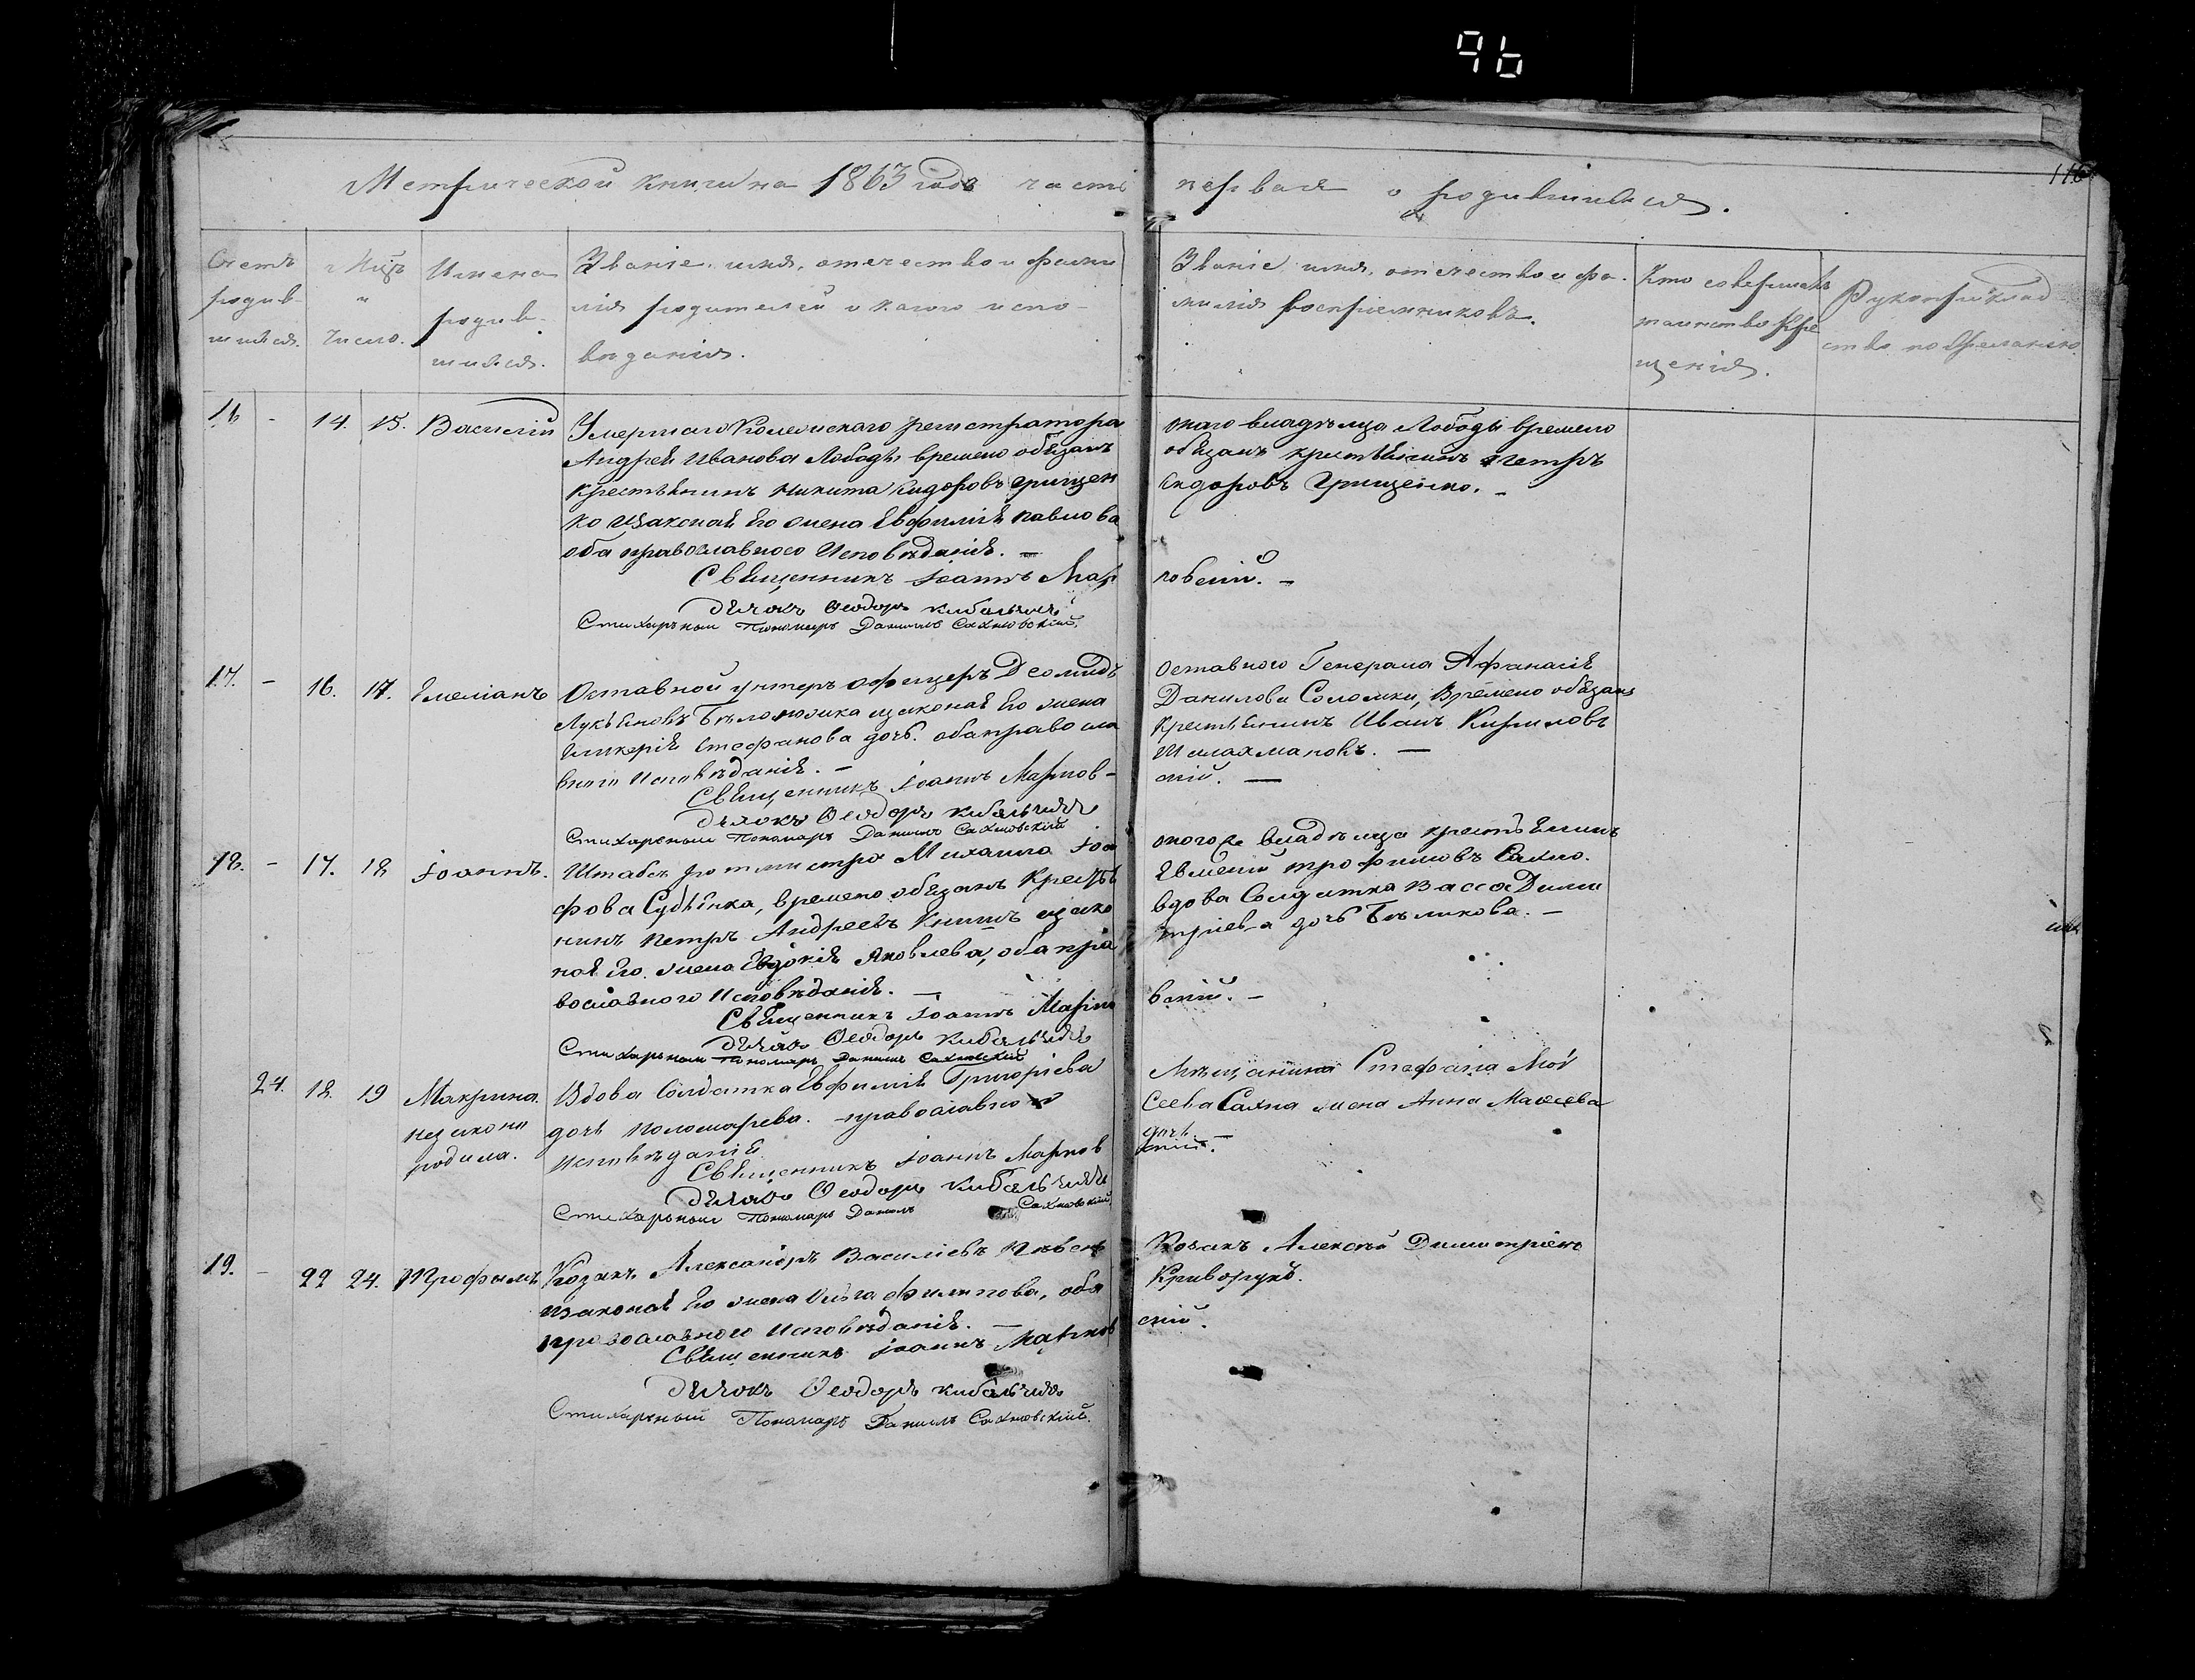 96
116
Метрической книги на 1863 годъ часть первая о родившихся.
Счетъ родив-шихся.
Мцъ и число.
Имена родив-шихся.
Званіе, имя, отечество и фами
лія родителей и какого испо-
вѣданія.
Званіе, имя, отечество и фа-
милія воспріемниковъ.
Кто совершалъ
таинство кре
щенія.
Рукоприклад
ство по желанію.
16 - 14. 15. Василій
Умершаго Колежскаго регистратора
Андрея Иванова Лободы времено обязанъ
крестьянинъ Никита Сидоровъ Грищен
ко изаконая Его жена Евфимія Павлова
оба православного Исповѣданія. —
Священникъ Іоаннъ Мар
Дьячокъ Ѳеодоръ Кибальчичъ
Стихарный Пономарь Даніилъ Сахновскій.
оного владѣльца Лободы времено
обязанъ крестьянинъ Петръ
Сидоровъ Грищенко. —
ковскій. —
17. - 16. 17. Емеліанъ
Оставной унтеръ офицеръ Деомидъ
Лукьяновъ Бѣло изаконая Его жена
Гликерія Стефанова дочь. оба правосла
внаго Исповѣданія. —
Священникъ Іоаннъ Марков-
Дьячокъ Ѳеодоръ Кибальчичъ
Стихарный Пономарь Даніилъ Сахновскій
Оставного Генерала Афанасія
Данилова Соломки, времено обязанъ
крестьянинъ Иванъ Кириловъ
Шлахмановъ. —
скій. —
18. - 17. 18 Іоаннъ.
Штабсъ ротмистра Михаила Іоси
фова Судіенка, времено обязанъ крестья
нинъ Петръ Андреевъ Книшъ изако
ная Его жена Евдокія Яковлева, оба пра
вославного Исповѣданія. —
Священникъ Іоаннъ Марко
Дьячокъ Ѳеодоръ Кибальчичъ
Стихарный Пономарь Даніилъ Сахновскій
оного владѣльца крестьянинъ
Евмений Трофимовъ Сахно.
вдова Солдатка Васса Дими
тріева дочь Бѣликова. —
вскій. —
24. 18. 19 Макрина.
незаконо
родила.
Вдова Солдатка Евфимія Григоріева
дочь Поломарева. православного
Исповѣданія
Священникъ Іоаннъ Марков
Дьячокъ Ѳеодоръ Кибальчичъ
Стихарный Пономарь Даніилъ Сахновскій.
Мѣщанина Стефана Мой
сеева Сахна жена Анна Моисеева
дочь. —
скій.
19. - 22 24. Трофымъ
Козакъ Александръ Василіевъ Пѣвень
изаконая Его жена Ольга Филипова, оба
православного Исповѣданія. —
Священникъ Іоаннъ Марков
Дьячокъ Ѳеодоръ Кибальчичъ
Стихарный Пономарь Даніилъ Сахновскій.
Козакъ Алексѣй Димитріевъ
Криворукъ.
скій.